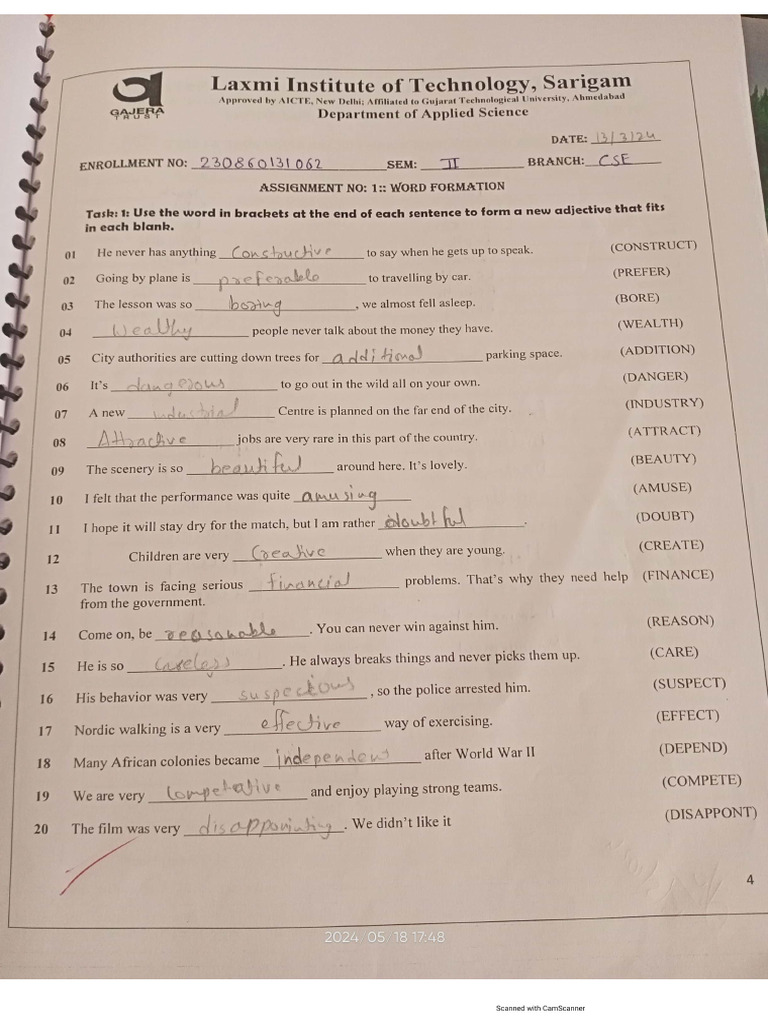 GAJERA
TRUST
Laxmi Institute of Technology, Sarigam
Approved by AICTE, New Delhi; Affiliated to Gujarat Technological University, Ahmedabad
Department of Applied Science
DATE: 13/3/24
ENROLLMENT NO: 230860131062 SEM: II BRANCH: CSE
ASSIGNMENT NO: 1:: WORD FORMATION
Task: 1: Use the word in brackets at the end of each sentence to form a new adjective that fits
in each blank.
01 He never has anything Constructive to say when he gets up to speak. (CONSTRUCT)
02 Going by plane is preferable to travelling by car. (PREFER)
03 The lesson was so boring, we almost fell asleep. (BORE)
04 Wealthy people never talk about the money they have. (WEALTH)
05 City authorities are cutting down trees for additional parking space. (ADDITION)
06 It's dangerous to go out in the wild all on your own. (DANGER)
07 A new industrial Centre is planned on the far end of the city. (INDUSTRY)
08 Attractive jobs are very rare in this part of the country. (ATTRACT)
09 The scenery is so beautiful around here. It's lovely. (BEAUTY)
10 I felt that the performance was quite amusing (AMUSE)
11 I hope it will stay dry for the match, but I am rather doubtful. (DOUBT)
12 Children are very Creative when they are young. (CREATE)
13 The town is facing serious financial problems. That's why they need help (FINANCE)
from the government.
14 Come on, be reasonable. You can never win against him. (REASON)
15 He is so careless. He always breaks things and never picks them up. (CARE)
16 His behavior was very suspecious, so the police arrested him. (SUSPECT)
17 Nordic walking is a very effective way of exercising. (EFFECT)
18 Many African colonies became after World War II (DEPEND)
19 We are very Competative and enjoy playing strong teams. (COMPETE)
20 The film was very disapponinting. We didn't like it (DISAPPONT)
4
2024/05/18 17:48
Scanned with CamScanner